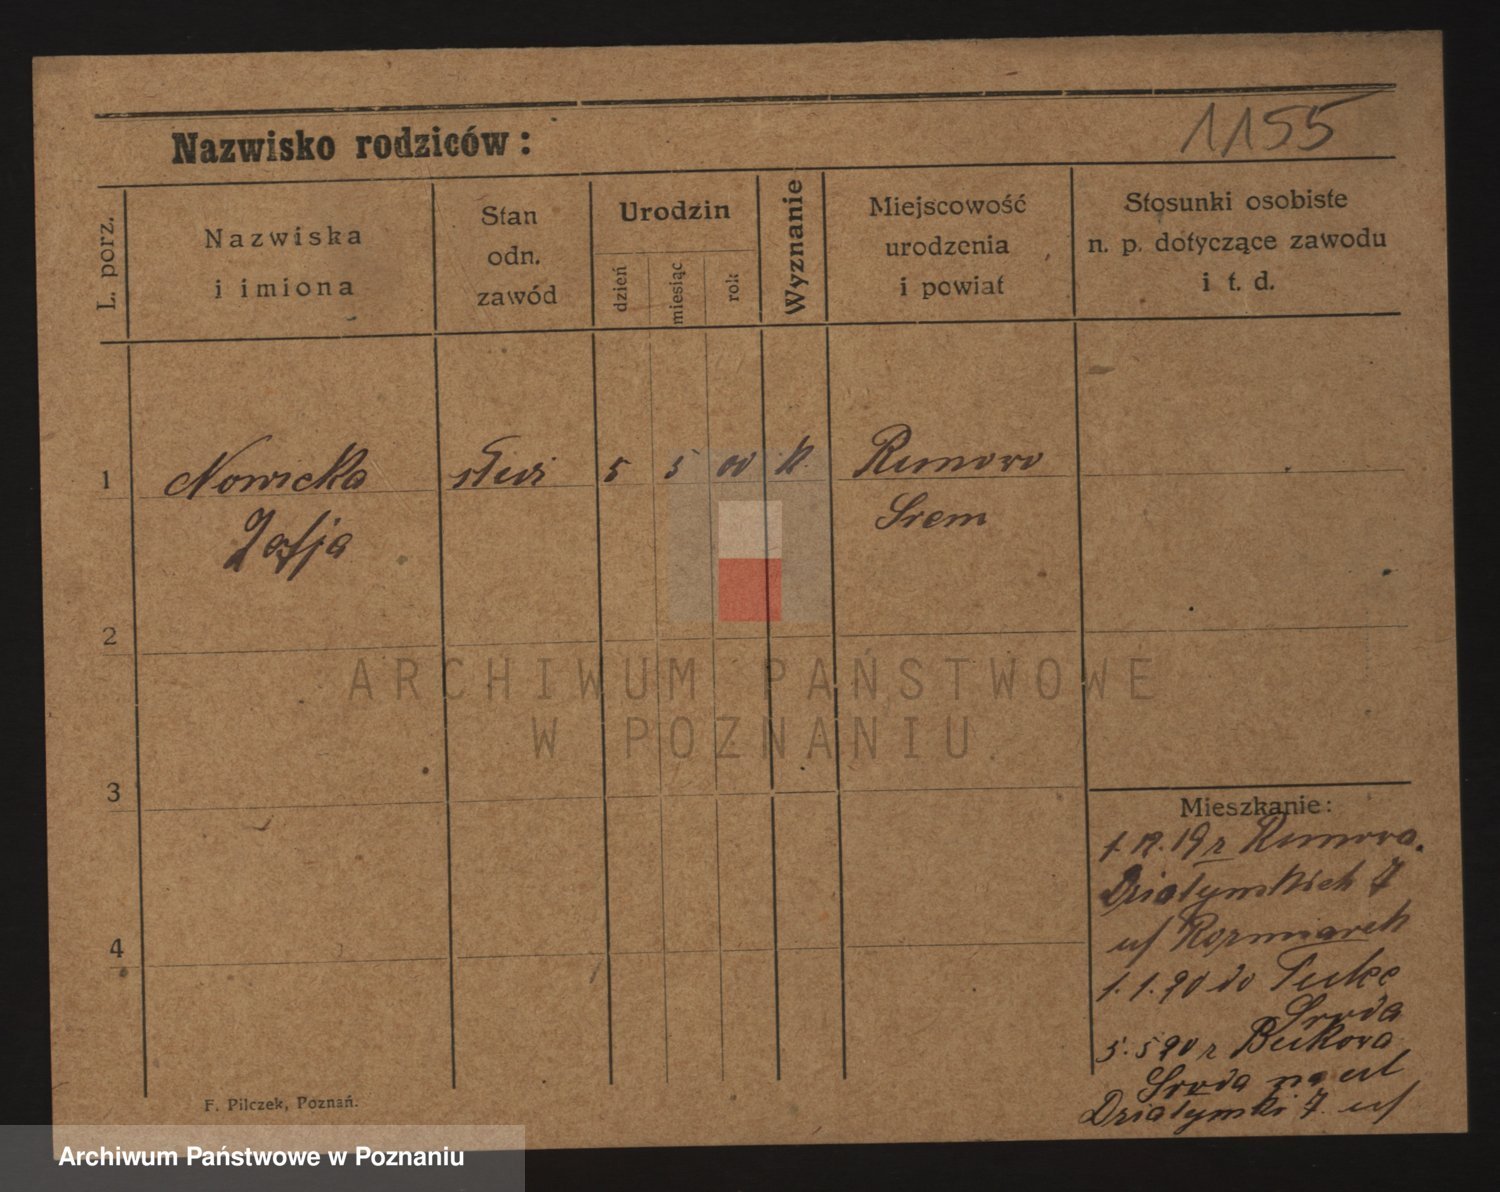 1155
Nazwisko rodziców:
L. porz.
Nazwiska
i imiona
Stan
odn.
zawód
Urodzin
dzień
miesiąc
rok
Wyznanie
Miejscowość
urodzenia
i powiat
Stosunki osobiste
n. p. dotyczące zawodu
i t. d.
1
Nowicka
Zofja
5 5 00 k.
Runowo
Srem
2
ARCHIWUM PAŃSTWOWE
W POZNANIU
3
Mieszkanie:
1. 12. 19 z Runowa.
Działyńskich 7
1. 1. 20 do
Sroda
5. 5 20 z
Sroda na ul
Działyński 7.
4
F. Pilczek, Poznań.
Archiwum Państwowe w Poznaniu